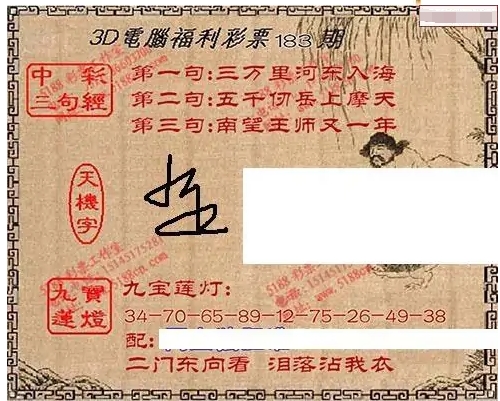 3D電腦福利彩票183期
中彩
三句經
第一句:三万里河东入海
第二句:五千仞岳上摩天
第三句:南望王师又一年
天機字
九寶
蓮燈
九宝莲灯:
34-70-65-89-12-75-26-49-38
配:
二门东向看 泪落沾我衣